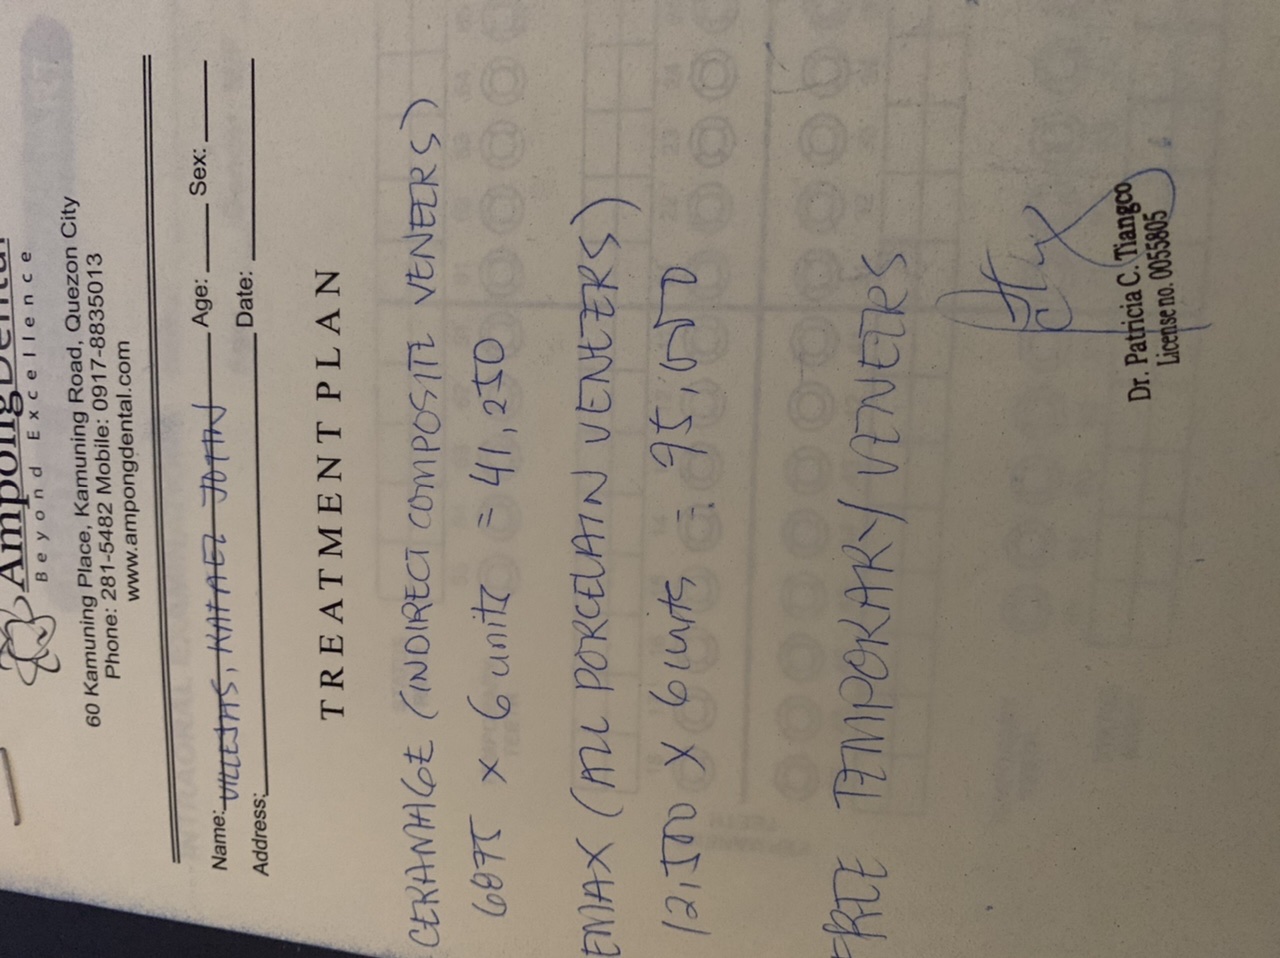 AmpongDental
Beyond Excellence
60 Kamuning Place, Kamuning Road, Quezon City
Phone: 281-5482 Mobile: 0917-8835013
www.ampongdental.com
Name: VILLEJAS, RAFAEL JOHN Age: Sex:
Address: Date:
TREATMENT PLAN
CERAMAGE (INDIRECT COMPOSITE VENEERS)
6875 x 6 units = 41,250
EMAX (ALL PORCELAIN VENEERS)
12,500 x 6 units = 75,000
FREE TEMPORARY VENEERS
Dr. Patricia C. Tiangco
License no. 0055805